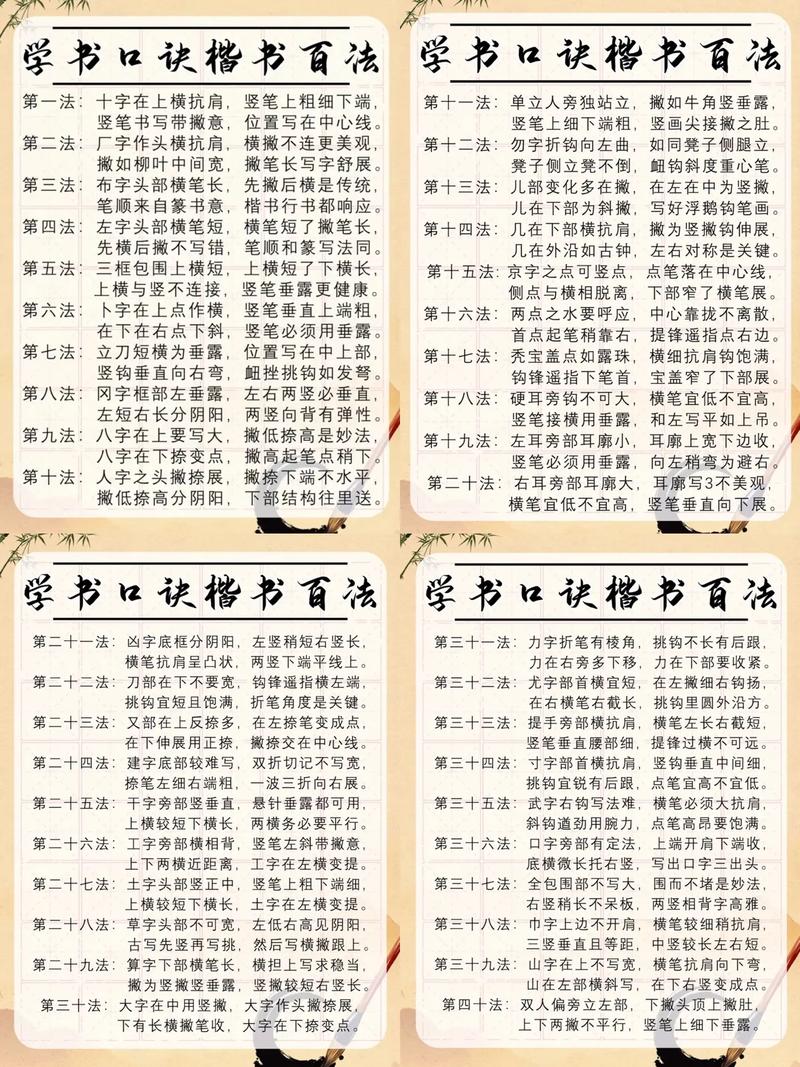 学书口诀楷书百法
第一法：十字在上横抗肩，竖笔上粗细下端，
竖笔书写带撇意，位置写在中心线。
第二法：厂字作头横抗肩，横撇不连更美观，
撇如柳叶中间宽，撇笔长写字舒展。
第三法：布字头部横笔长，先撇后横是传统，
笔顺来自篆书意，楷书行书都响应。
第四法：左字头部横笔短，横笔短了撇笔长，
先横后撇不写错，笔顺和篆写法同。
第五法：三框包围上横短，上横短了下横长，
上横与竖不连接，竖笔垂露更健康。
第六法：卜字在上点作横，竖笔垂直上端粗，
在下在右点下斜，竖笔必须用垂露。
第七法：立刀短横为垂露，位置写在中上部，
竖钩垂直向右弯，衄挫挑钩如发弩。
第八法：冈字框部左垂露，左右两竖必垂直，
左短右长分阴阳，两竖向背有弹性。
第九法：八字在上要写大，撇低捺高是妙法，
八字在下捺变点，撇高起笔点稍下。
第十法：人字之头撇捺展，撇捺下端不水平，
撇低捺高分阴阳，下部结构往里送。
学书口诀楷书百法
第十一法：单立人旁独站立，撇如牛角竖垂露，
竖笔上细下端粗，竖画尖接撇之肚。
第十二法：勿字折钩向左曲，如同凳子侧腿立，
凳子侧立凳不倒，衄钩斜度重心笔。
第十三法：儿部变化多在撇，在左在中为竖撇，
儿在下部为斜撇，写好浮鹅钩笔画。
第十四法：几在下部横抗肩，撇为竖撇钩伸展，
几在外沿如古钟，左右对称是关键。
第十五法：京字之点可竖点，点笔落在中心线，
侧点与横相脱离，下部窄了横笔展。
第十六法：两点之水要呼应，中心靠拢不离散，
首点起笔稍靠右，提锋遥指点右边。
第十七法：秃宝盖点如露珠，横细抗肩钩饱满，
钩锋遥指下笔首，宝盖窄了下部展。
第十八法：硬耳旁钩不可大，横笔宜低不宜高，
竖笔接横用垂露，和左写平如上吊。
第十九法：左耳旁部耳廓小，耳廓上宽下边收，
竖笔必须用垂露，向左稍弯为避右。
第二十法：右耳旁部耳廓大，耳廓写3不美观，
横笔宜低不宜高，竖笔垂直向下展。
学书口诀楷书百法
第二十一法：凶字底框分阴阳，左竖稍短右竖长，
横笔抗肩呈凸状，两竖下端平线上。
第二十二法：刀部在下不要宽，钩锋遥指横左端，
挑钩宜短且饱满，折笔角度是关键。
第二十三法：又部在上反捺多，在左捺笔变成点，
在下伸展用正捺，撇捺交在中心线。
第二十四法：建字底部较难写，双折切记不写宽，
捺笔左细右端粗，一波三折向右展。
第二十五法：干字旁部竖垂直，悬针垂露都可用，
上横较短下横长，两横务必要平行。
第二十六法：工字旁部横相背，竖笔左斜带撇意，
上下两横近距离，工字在左横变提。
第二十七法：土字头部竖正中，竖笔上粗下端细，
上横较短下横长，土字在左横变提。
第二十八法：草字头部不可宽，左低右高见阴阳，
古写先竖再写挑，然后写横撇跟上。
第二十九法：算字下部横笔长，横担上写求稳当，
撇为竖撇竖垂露，竖撇较短右竖长。
第三十法：大字在中用竖撇，大字作头撇捺展，
下有长横撇笔收，大字在下捺变点。
学书口诀楷书百法
第三十一法：力字折笔有棱角，挑钩不长有后跟，
力在右旁多下移，力在下部要收紧。
第三十二法：尤字部首横宜短，在左撇细右钩扬，
在右横笔右截长，挑钩里圆外沿方。
第三十三法：提手旁部横抗肩，横笔左长右截短，
竖笔垂直腰部细，提锋过横不可远。
第三十四法：寸字部首横抗肩，竖钩垂直中间细，
挑钩宜锐有后跟，点笔宜高不宜低。
第三十五法：武字右钩写法难，横笔必须大抗肩，
斜钩遒劲用腕力，点笔高昂要饱满。
第三十六法：口字旁部有定法，上端开肩下端收，
底横微长托右竖，写出口字三出头。
第三十七法：全包围部不写大，围而不堵是妙法，
右竖稍长不呆板，两竖相背字高雅。
第三十八法：巾字上边不开肩，横笔较细稍抗肩，
三竖垂直且等距，中竖较长左右短。
第三十九法：山字在上不写宽，横笔抗肩向下弯，
山在左部横斜写，在下右竖变成点。
第四十法：双人偏旁立左部，下撇头顶上撇肚，
上下两撇不平行，竖笔上细下垂露。